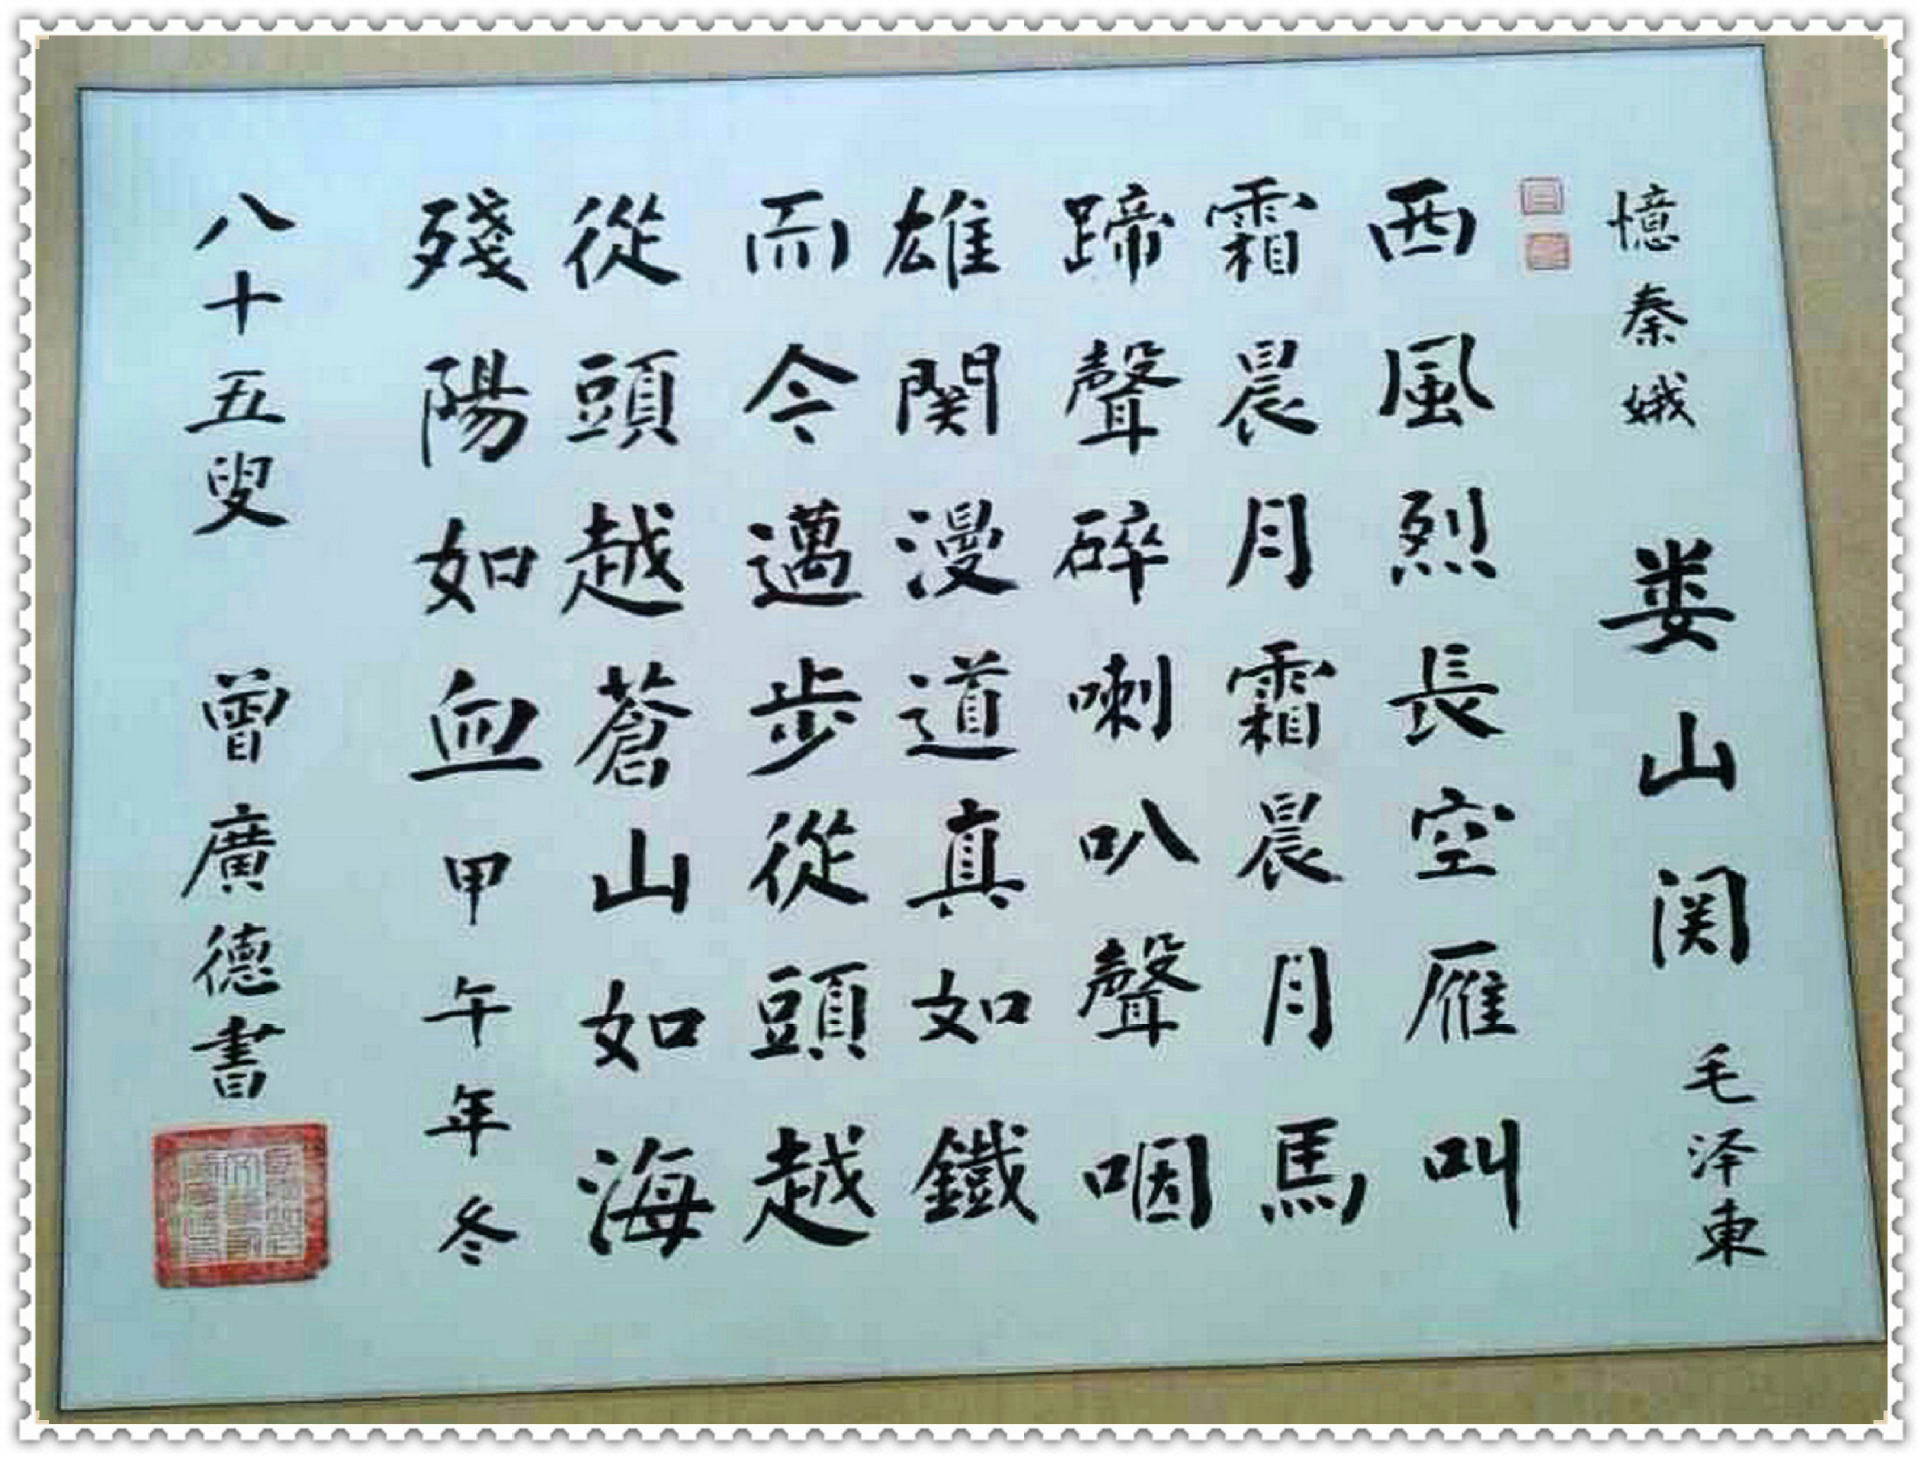 憶秦娥 娄山関 毛泽東
西風烈長空雁叫
霜晨月霜晨月馬
蹄聲碎喇叭聲咽
雄関漫道真如鐵
而今邁步從頭越
從頭越蒼山如海
殘陽如血甲午年冬
八十五叟 曾廣德書